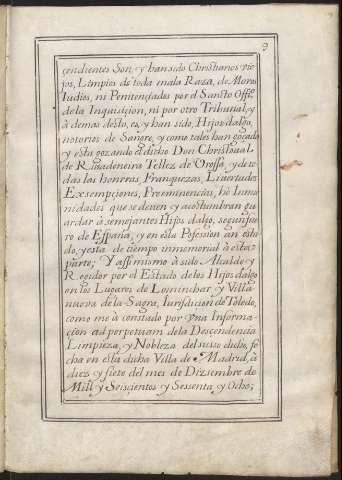 9
cendientes Son, y han sido Christianos vie-
jos, Limpios de toda mala Raza, de Moros
Iudios, ni Penitenciados por el Sancto Offº
de la Inquisicion, ni por otro Tribunal, y
à demas desto, es, y han sido, Hijos dalgo,
notorios de Sangre, y como tales han goçado
y esta gozando el dicho Don Christoual
de Riuadeneira Tellez de Orosso, y de to-
das las honrras, Franquezas, Liuertades
Exsempciones, Preeminencias, hè Inmu-
nidades que se deuen y acostumbran gu-
ardar à semejantes Hijos dalgo, segun fu-
ero de España, y en esta Posesion an esta
do, y esta de tiempo inmemorial à esta
parte; Y assi mismo à sido Alcalde y
Regidor por el Estado de los Hijos dalgo
en los Lugares de Lominchar y Villa-
nueva de la Sagra, Iurisdicion de Toledo,
como me à constado por vna Informa-
çion ad perpetuam de la Descendencia
Limpieza, y Nobleza del suso dicho, fe
cha en esta dicha Villa de Madrid, à
diez y siete del mes de Diziembre de
Mill y Seiscientos y Sessenta y Ocho;